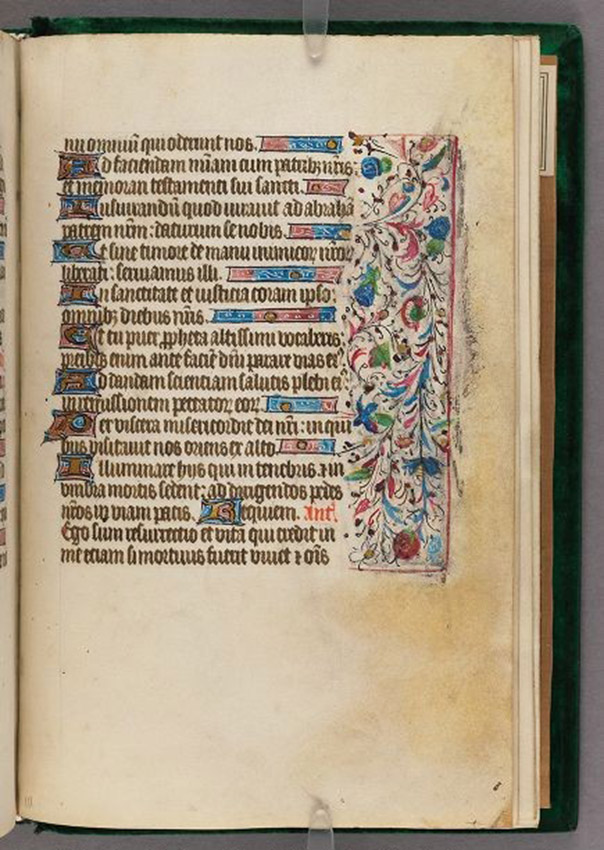 nu omniū qui oderunt nos.
Ad faciendam mīam cum patribȝ nr̄is:
et memorari testamenti sui sancti.
Iusiurandū quod iuravit ad abrahā
patrem nr̄m: daturum se nobis.
Ut sine timore de manu inimicoꝝ nr̄oꝝ
liberati: serviamus illi.
In sanctitate et iusticia coram ipso:
omnibȝ diebus nr̄is.
Et tu puer ꝓpheta altissimi vocaberis
preibis enim ante faciē dn̄i parare vias eꝰ
Ad dandam scientiam salutis plebi eiꝰ
in remissionem peccatoꝝ eoꝝ.
Per viscera misericordie dei nr̄i: in qui
bus visitavit nos oriens ex alto.
Illuminare hijs qui in tenebris ⁊ in
umbra mortis sedent: ad dirigendos pedes
nr̄os in viam pacis. Requiem. Ant̄.
Ego sum resurrectio et vita qui credit in
me etiam si mortuus fuerit vivet ⁊ om̄s